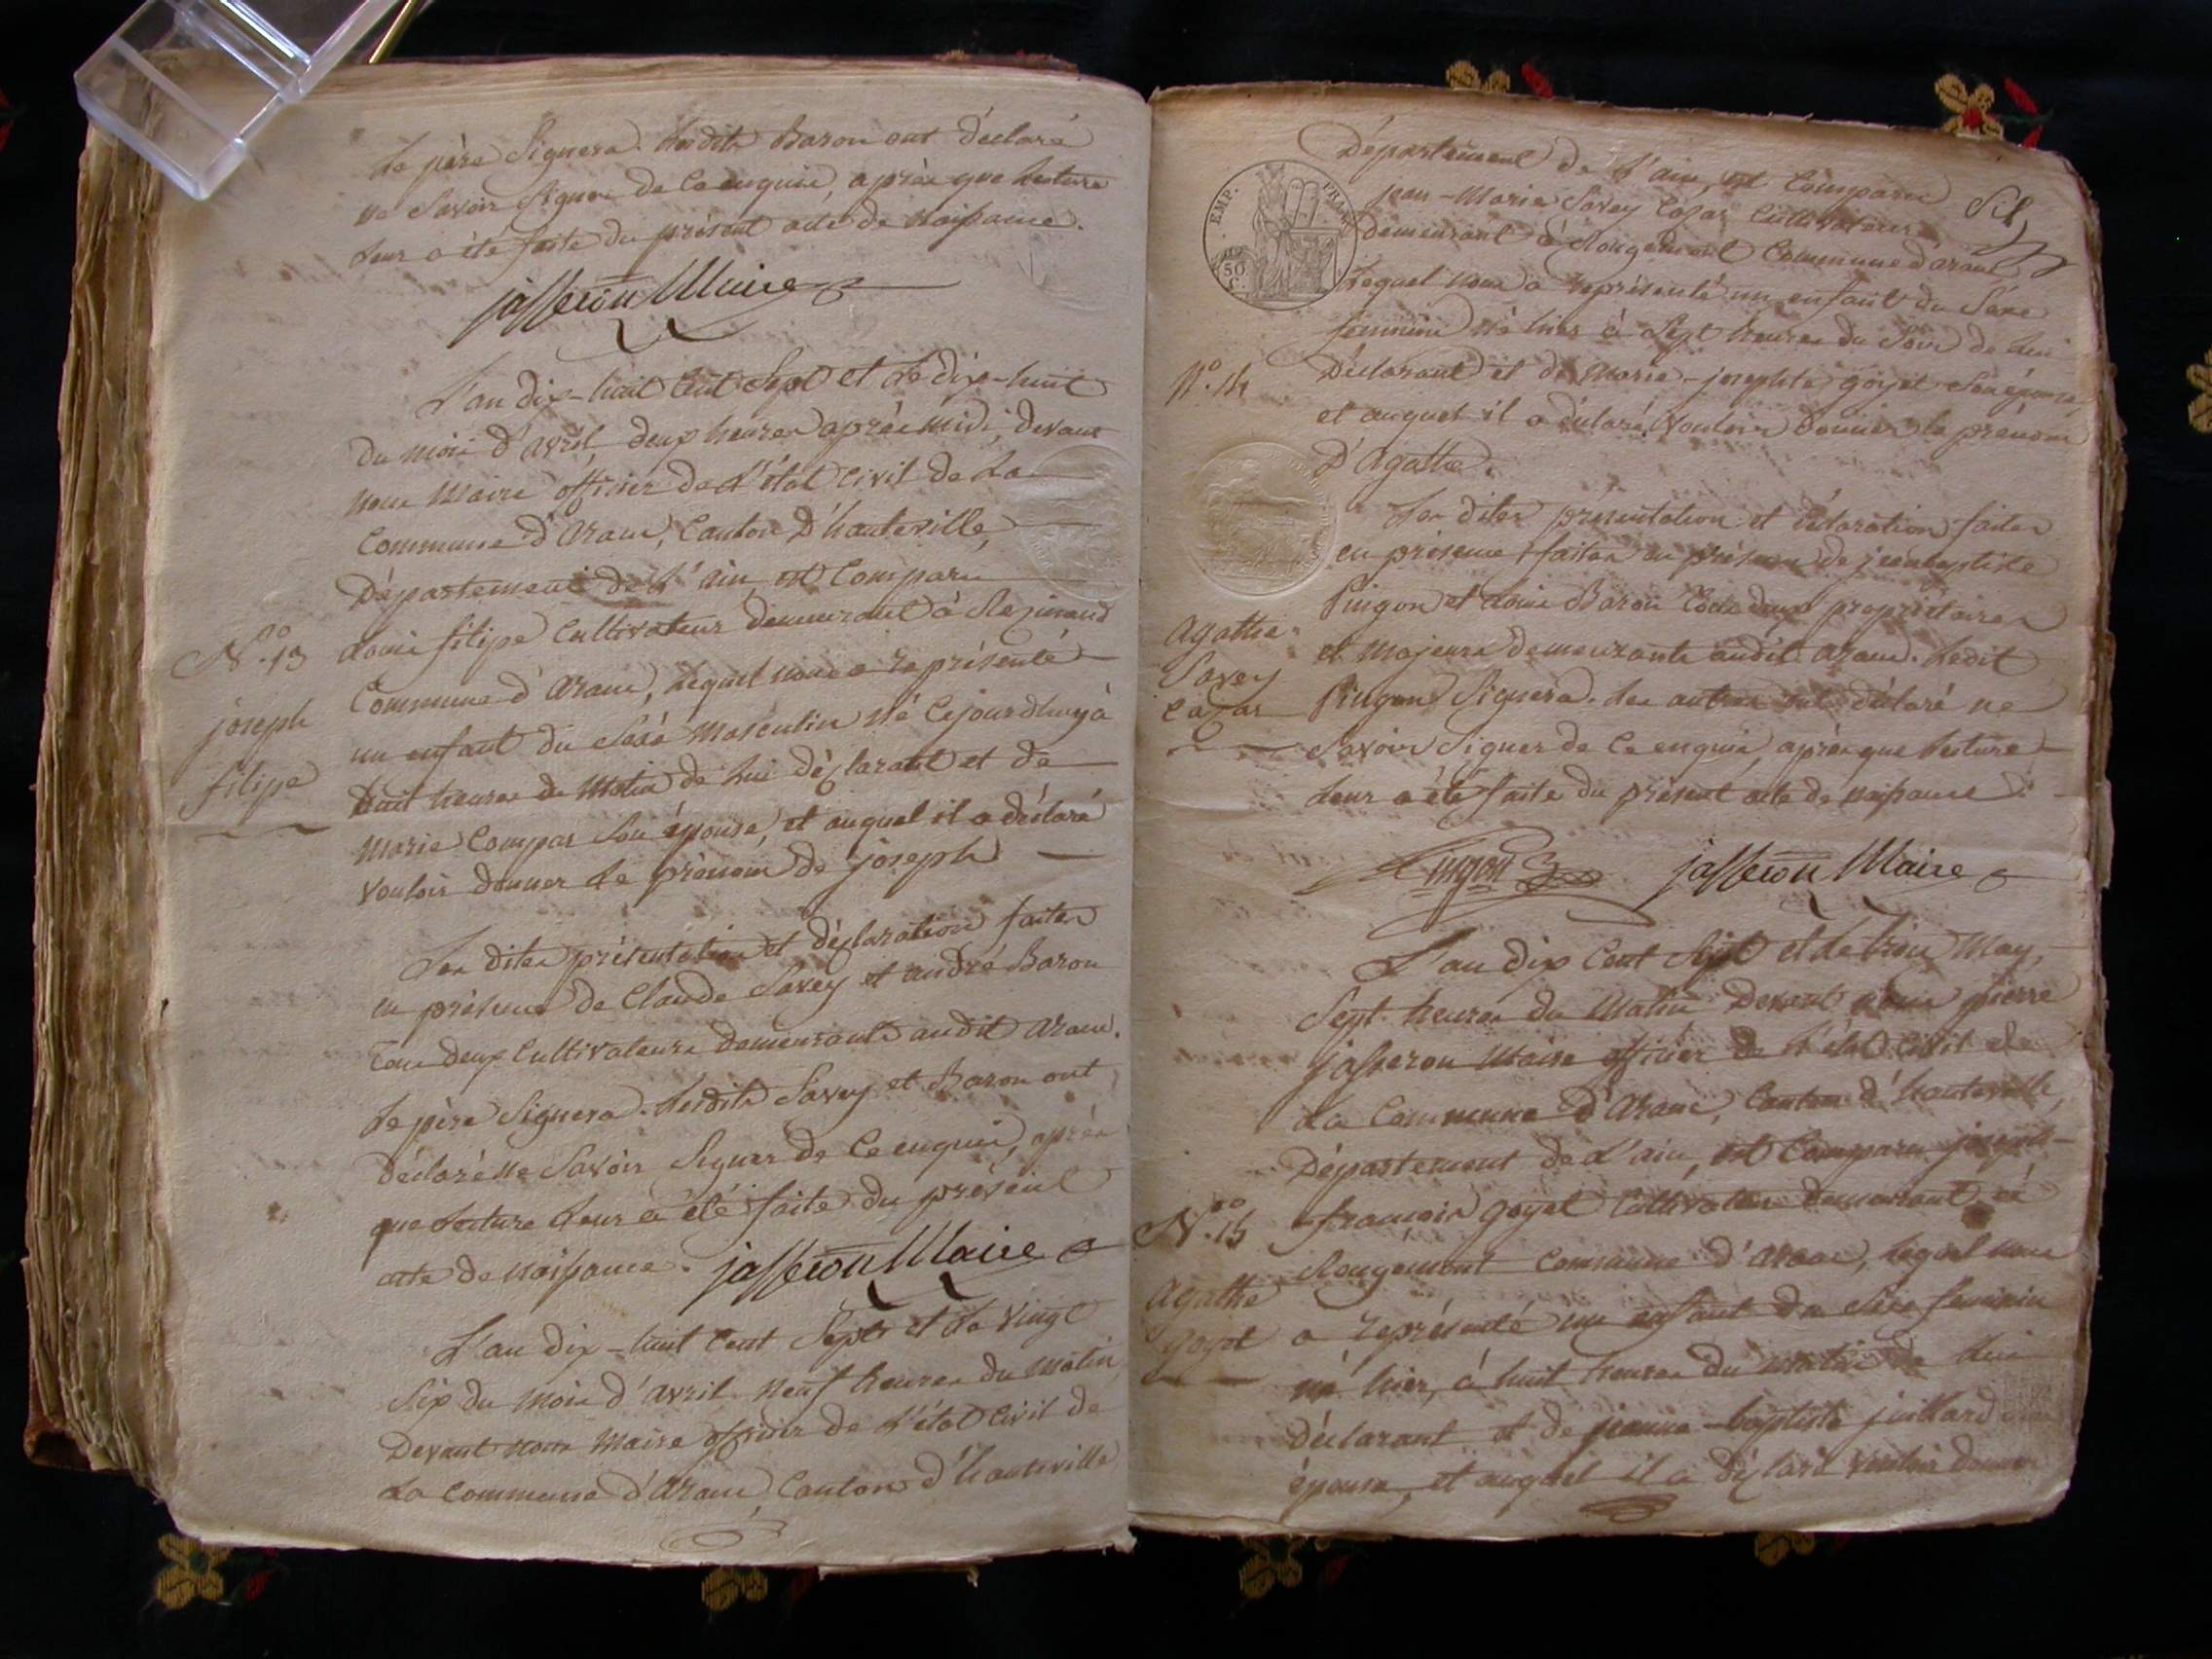 Le père Signera. Lesdits Baron ont déclaré
ne Savoir Signer de Ce enquis, après que Lecture
Leur a été faite du présent acte de Naissance.
jasseron Maire
L'an dix-huit Cent Sept et Le dix-huit
du mois d'avril, deux heures après midi, devant
nous Maire officier de L'état Civil de La
Commune d'Aranc, Canton d'hauteville,
Département de L'ain, est Comparu
Louis filipe Cultivateur demeurant à
Commune d'Aranc, Lequel nous a représenté
un enfant du Séxe Masculin Né Cejourdhuy à
huit heures de Matin de Lui déclarant et de
Marie Compas Son épouse, et auquel il a déclaré
Vouloir donner Le prénom de joseph
N.° 13
joseph
filipe
Les dites présentation et déclaration faites
en présence de Claude Savey et andré Baron
Tous deux Cultivateurs demeurants audit Aranc.
Le père Signera. Lesdits Savey et Baron ont
déclaré Ne Savoir Signer de Ce enquis, après
que Lecture Leur a été faite du présent
acte de Naissance. jasseron Maire
L'an dix-huit Cent Sept et Le vingt
Six du mois d'avril Neuf heures du Matin
Devant nous Maire officier de L'état Civil de
La Commune d'Aranc Canton d'hauteville
EMP. FRANÇ.
50
C.
Département de L'ain, est Comparu
jean-Marie Savey Cazar Cultivateur
Demeurant à Rougemont Commune d'aranc
Lequel nous a représenté un enfant du Séxe
féminin né hier à Sept heures du Soir de Lui
Déclarant et de Marie-josephte goyet Son épouse,
et auquel il a déclaré Vouloir donner le prénom
D'Agathe.
N.° 14
Agathe
Savey
Cazar
Les dites présentation et déclaration faites
en présence faites en présence de jeanbaptiste
Pingon et Louis Baron Tous deux propriétaires
et Majeurs demeurants audit aranc. Ledit
Pingon Signera. Les autres ont déclaré ne
Savoir Signer de Ce enquis, après que Lecture
Leur a été faite du présent acte de Naissance.
Pingon jasseron Maire
L'an dix Cent Sept et Le trois May,
Sept heures du Matin Devant nous pierre
jasseron Maire officier de L'état Civil de
La Commune d'Aranc, Canton d'hauteville,
Département de L'ain, est Comparu joseph-
françois goyet Cultivateur demeurant à
Rougemont Commune d'Aranc, Lequel nous
a représenté un enfant du Séxe féminin
né hier, à huit heures du matin de Lui
Déclarant et de jeanne-baptiste juillard
épouse, et auquel il a déclaré Vouloir donner
N.° 15
Agathe
goyet